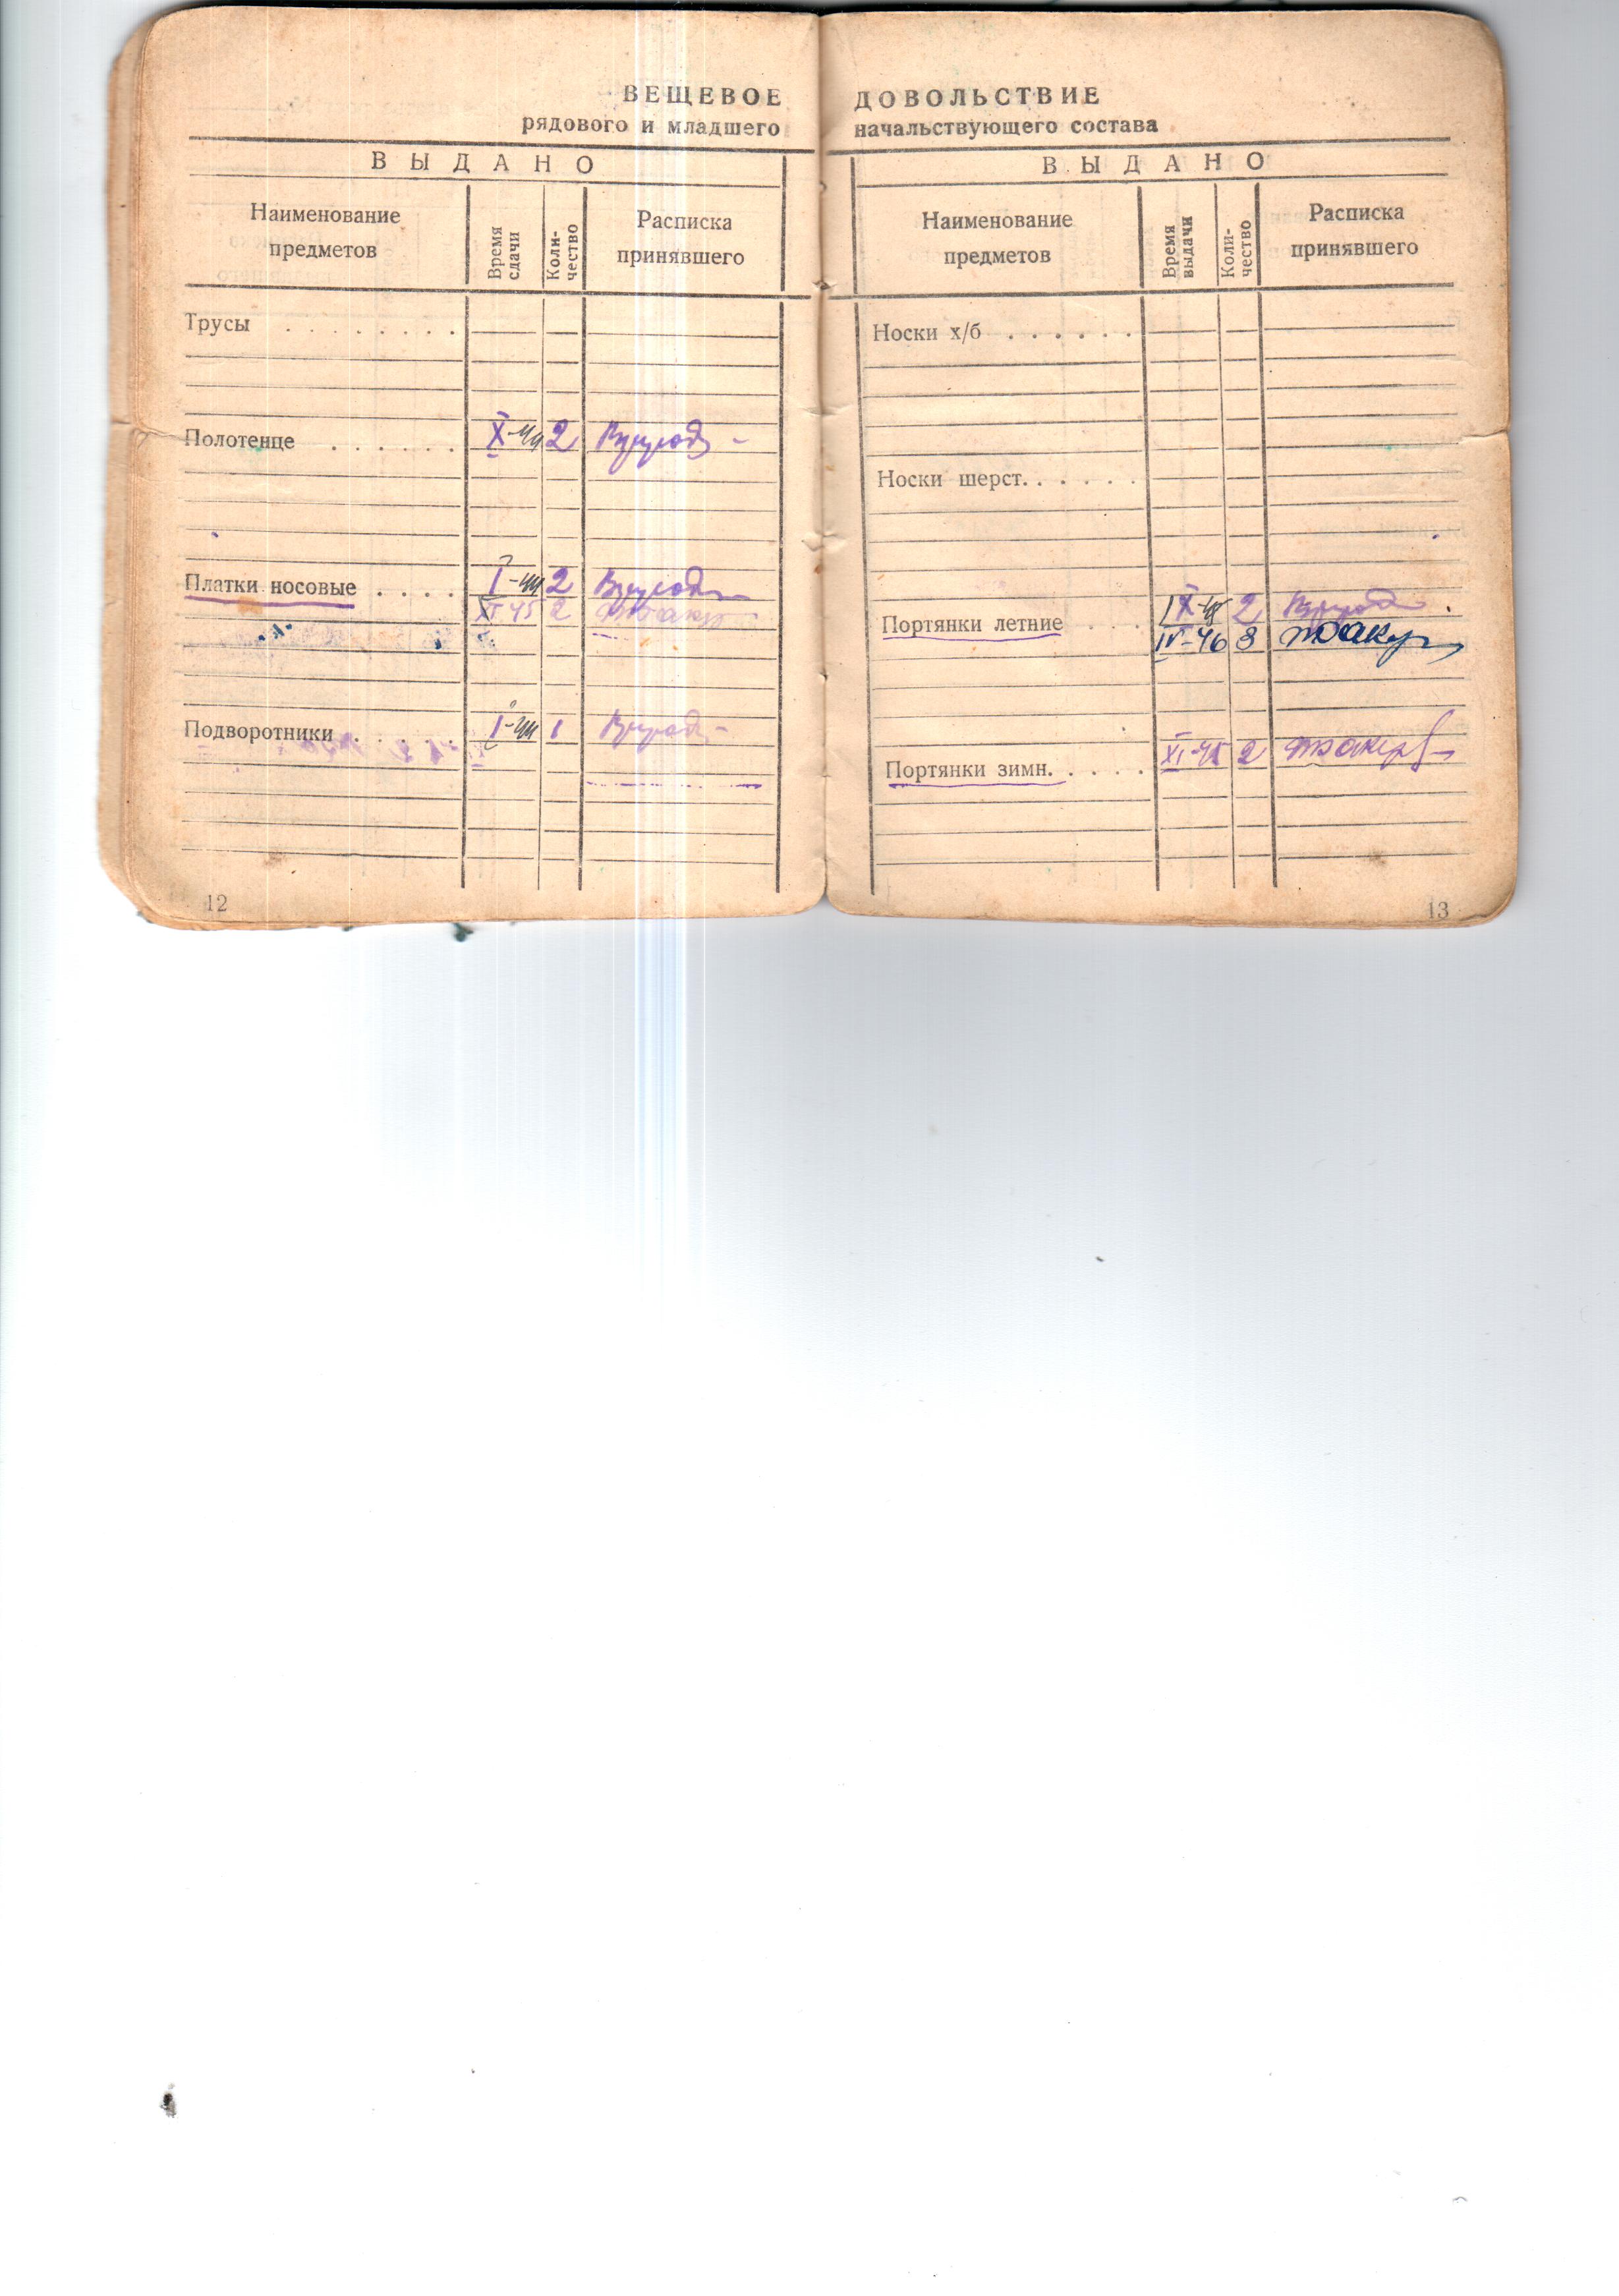 ВЕЩЕВОЕ
рядового и младшего
ВЫДАНО
Наименование предметов
Время сдачи
Коли-чество
Расписка принявшего
Трусы . . . . . . . .
Полотенце . . . . . . X-44 2
Платки носовые . . . . I-44 2
XI 45 2
Подворотники . . . . . I-44 1
12
ДОВОЛЬСТВИЕ
начальствующего состава
ВЫДАНО
Наименование предметов
Время выдачи
Коли-чество
Расписка принявшего
Носки х/б . . . . . .
Носки шерст. . . . . .
Портянки летние . . . 2
IV-46 3
Портянки зимн. . . . . XI-45 2
13